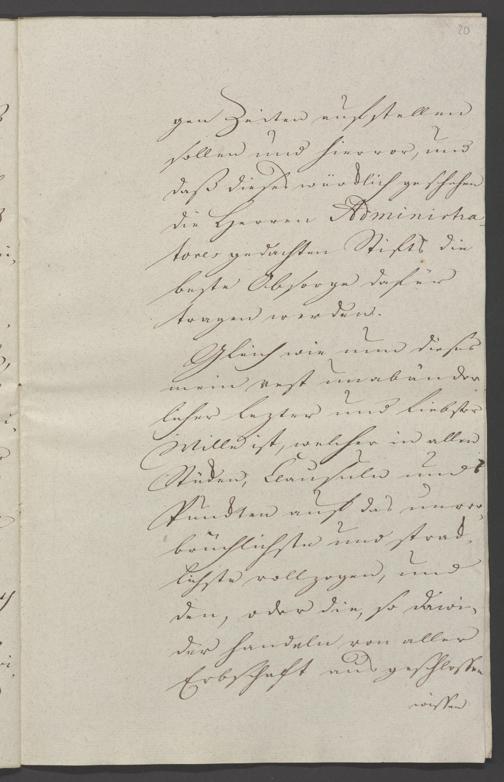 20
gen Zeiten aufstellen
sollen und hiervor, und
daß dieses würdtlich geschehen
die Herren Administra-
tores gedachten Stifts die
beste Obsorge dafür
tragen werden.
Gleich wie nun dieses
mein vest unabänder
licher lezter und liebster
Wille ist, welcher in allen
Stüken, Clausuln und
Punckten auf das unver-
brüchlichste und strack-
lichste vollzogen, und
den, oder die, so dawi-
der handeln von aller
Erbschaft ausgeschlossen
wissen